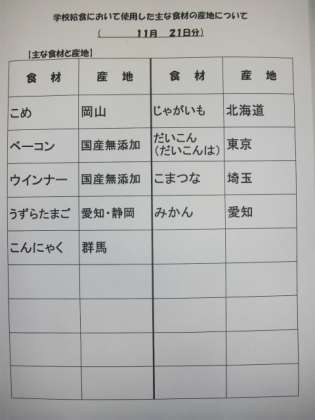 学校給食において使用した主な食材の産地について
(　　　11月　21日分)
[主な食材と産地]
食　材　産　地　食　材　産　地
こめ　岡山　じゃがいも　北海道
ベーコン　国産無添加　だいこん
(だいこんは)　東京
ウインナー　国産無添加　こまつな　埼玉
うずらたまご　愛知・静岡　みかん　愛知
こんにゃく　群馬